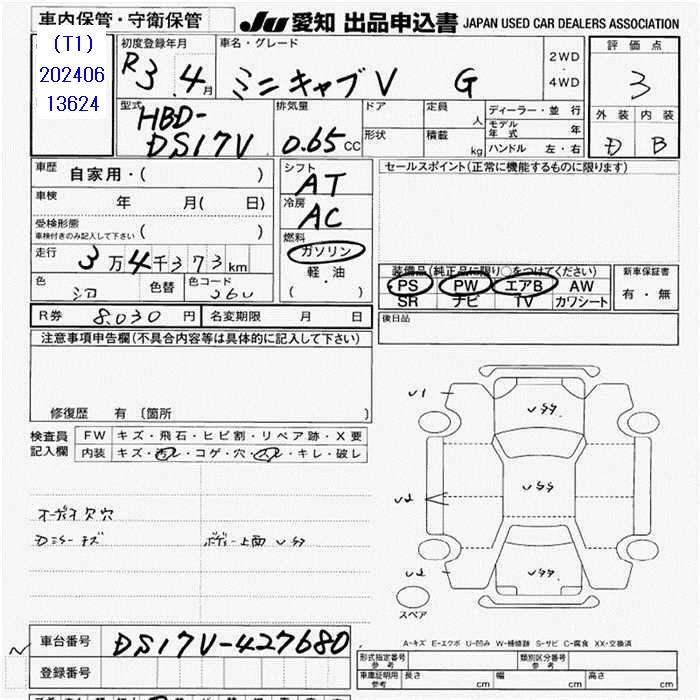 車内保管・守衛保管
JU 愛知 出品申込書 JAPAN USED CAR DEALERS ASSOCIATION
(T1)
202406
13624
初度登録年月
R3.4月
車名・グレード
ミニキャブV G
2WD
4WD
評価点
3
外装 内装
D B
型式
HBD-
DS17V
排気量
0.65 CC
ドア
形状
定員 人
積載 kg
ディーラー・並行
モデル年式 年
ハンドル 左・右
車歴
自家用・( )
車検 年 月( 日)
受検形態
車検付きのみ記入して下さい
走行 3万4千373km
色
色替
色コード
シフト
AT
冷房
AC
燃料
ガソリン
軽・油
( ・ )
セールスポイント(正常に機能するものに限ります)
装備品(純正品に限り○をつけてください)
PS PW エアB AW
SR ナビ TV カワシート
新車保証書
有・無
R券 8,030 円 名変期限 月 日
後日品
注意事項申告欄(不具合内容等は具体的に記入して下さい)
修復歴 有 〔箇所 〕
検査員
記入欄
FW キズ・飛石・ヒビ割・リペア跡・X要
内装 キズ・汚レ・コゲ・穴・スレ・キレ・破レ
オーディオ欠穴
ボディー上面 Uララ
U1
Uララ
Uララ
U2
U2
Uララ
スペア
A-キズ E-エクボ U-凹み W-補修跡 S-サビ C-腐食 XX-交換済
車台番号 DS17V-427680
登録番号
形式指定番号 参考
類別区分番号 参考
車庫証明用 参考 長さ cm 幅 cm 高さ cm